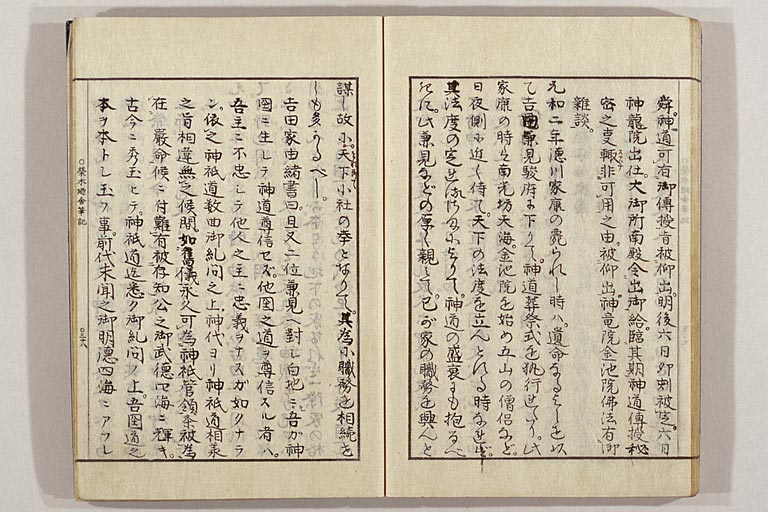 舜、神道可有御傳授旨被仰出、明後六日卯刻被定、六日
神龍院出仕、大御所南殿令出御給、臨其期神道傳授秘
密之事輙非可用之由、被仰出、神竜院金池院佛法有御
雜談。
元和二年徳川家康の薨られし時ハ、遺命なるよしを以
て吉田兼見駿府に下りて、神道葬祭式を執行せり、此
家康の時、南光坊天海、金池院を始め五山の僧侶など
日夜側に近く侍て、天下の法度を立んとれる時なせは、
其法度の定によりて、神道の盛衰にも抱るへ
きに、此兼見などの厚く親ミて、己が家の職務を興んと
謀し故に、天下小社の本となりて、其為に職務を相続を
しも多かるべし。
吉田家由緒書曰、且又二位兼見へ對し、白地ニ吾が神
國ニ生レテ神道尊信セズ、他国之道ヲ尊信スル者ハ、
吾主ニ不忠シテ他人之主ニ忠義ヲナスガ如クナラ
ン、依之神祇道数曲御糺問之上、神代ヨリ神祇道相承
之旨相違無之候間、如舊儀永久可為神祇管領条被為
在嚴命候ニ付、難有被存知、公之御武徳四海ニ輝キ、
古今ニ秀玉ヒテ、神祇道迄悉ク御糺問之上、吾国道之
本ヲ本トし玉フ事、前代未聞之御明徳四海ニアフレ